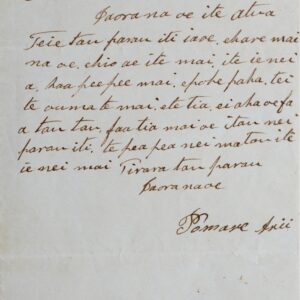 Iaorana oe ite Atua
Teie tau parau iti iaoe, ehare mai
na oe, ehio ae ite mai, ite ie nei
a, haa pee pee mai, e pohe paha, tei
te ou mate mai, ete tia, ei aha oe fa
a tau tau, faa tia mai oe i tau nei
parau iti, te pea pea nei matou ite
ie nei mai Tirara tau parau
Iaorana oe
Pomare Arii